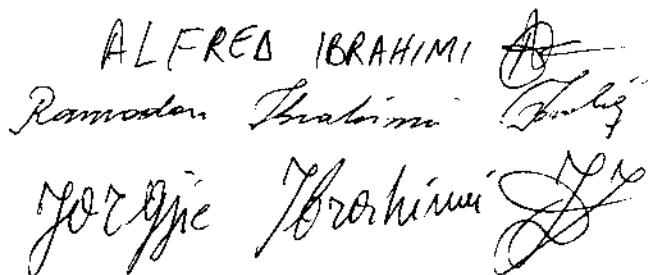 ALFRED IBRAHIMI
Ramadan Ibrahimi
Jorgjie Ibrahimi